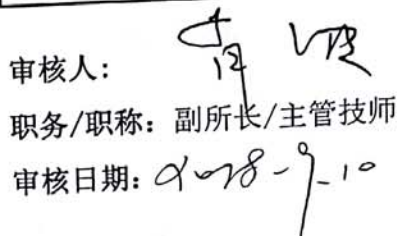 审核人：
职务/职称：副所长/主管技师
审核日期：2018-9-10